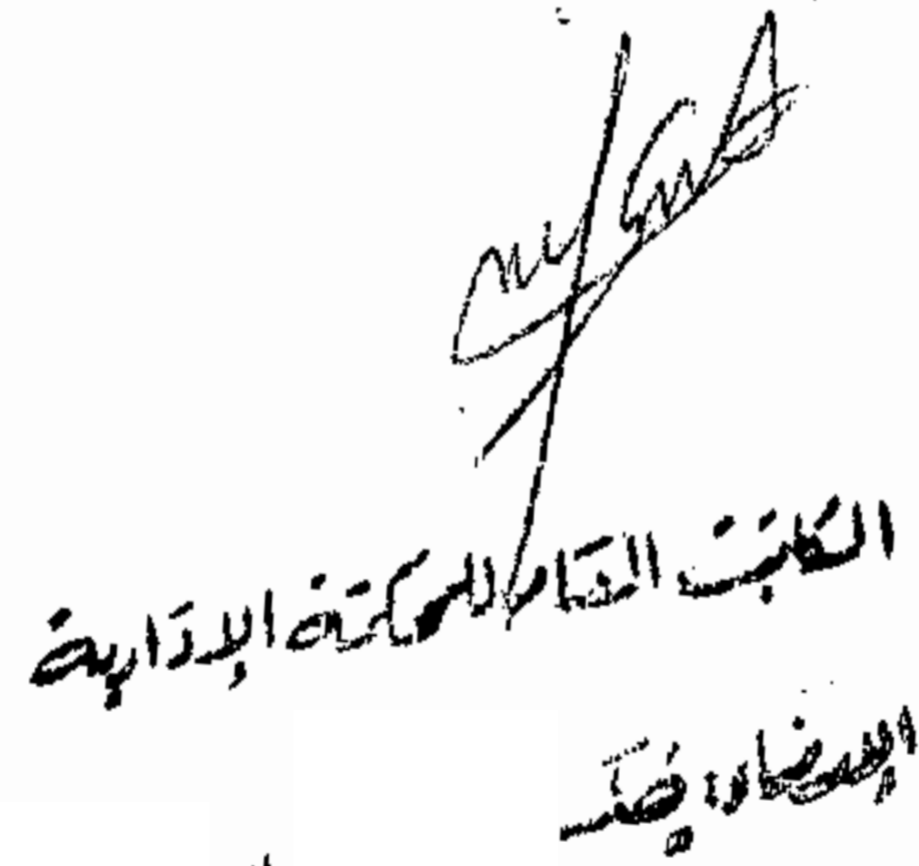 الكاتب العام للمحكمة الإدارية
الإمضاء